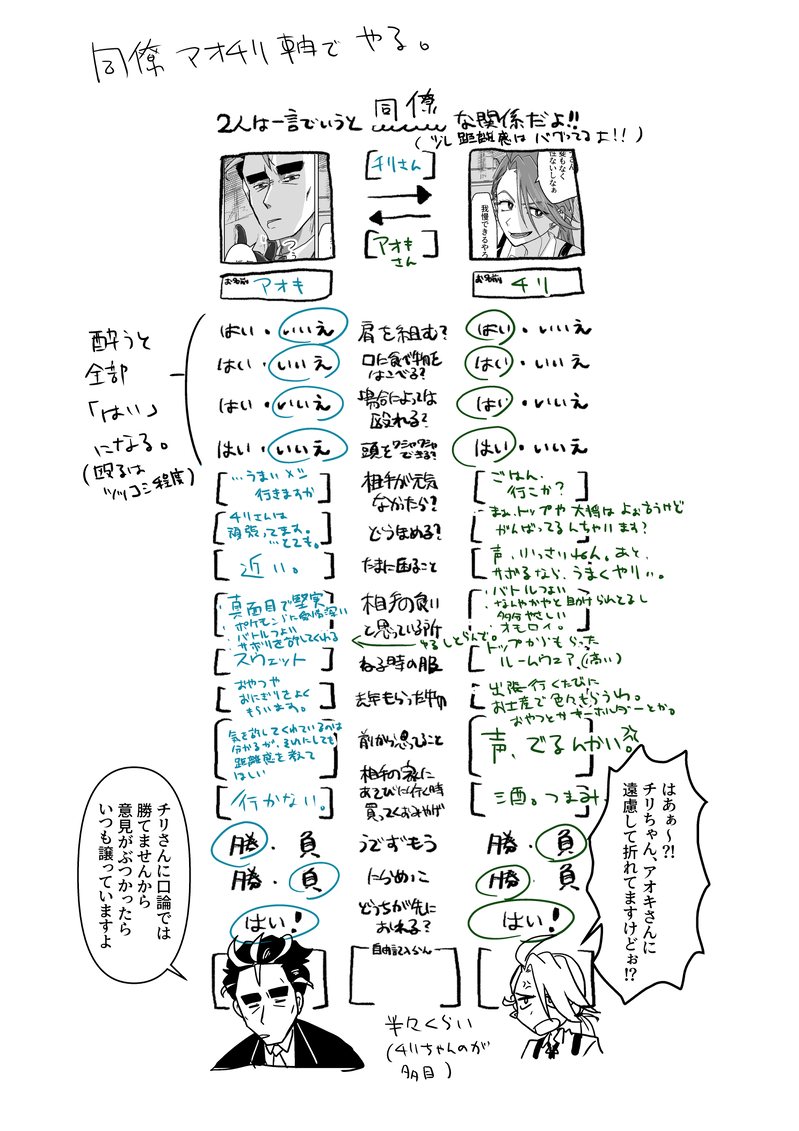 同僚アオチリ軸でやる。
2人は一言でいうと 同僚 な関係だよ!!
(少し距離感はバグってるよ!!)
チリさん
アオキ
さん
我慢できるやろ
お名前 アオキ
お名前 チリ
酔うと
全部
「はい」
になる。
(殴るは
ツッコミ程度)
はい・いいえ 肩を組む? はい・いいえ
はい・いいえ 口に食べ物を
はこべる? はい・いいえ
はい・いいえ 場合によっては
殴れる? はい・いいえ
はい・いいえ 頭をクシャクシャ
できる? はい・いいえ
…うまいメシ
行きますか
相手が元気
なかったら?
ごはん、
行こか?
チリさんは
頑張ってます。
…とても。
どうほめる?
まぁ、トップや大将はよぉ言うけど
がんばってるんちゃいます?
近い。
たまに困ること
声、いっさいねん。あと、
サボるなら、うまくやりぃ。
・真面目で堅実
・ポケモンに愛情深い
・バトルつよい
・サボりを許してくれる
相手の良い
と思っている所
・バトルつよい
・なんやかやと助けられてるし
多分やさしい
・オモロイ。
ゆるしとらんで。
スウェット
ねる時の服
トップからもらった
ルームウェア(高い)
おやつや
おにぎりをよく
もらいます。
去年もらった物
出張行くたびに
お土産で色々もらうわ。
おやつとかキーホルダーとか。
気を許してくれているのは
分かるが、それにしても
距離感を考えて
ほしい
前から思ってること
声、でるんかい。
行かない。
相手の家に
あそびに行く時
買ってくおみやげ
酒。つまみ
勝・負 うでずもう 勝・負
勝・負 にらめっこ 勝・負
はい! どっちが先に
おれる? はい!
自由記入らん
チリさんに口論では
勝てませんから
意見がぶつかったら
いつも譲っていますよ
はあぁ〜?!
チリちゃん、アオキさんに
遠慮して折れてますけどぉ!?
半々くらい
(チリちゃんのが
多目)